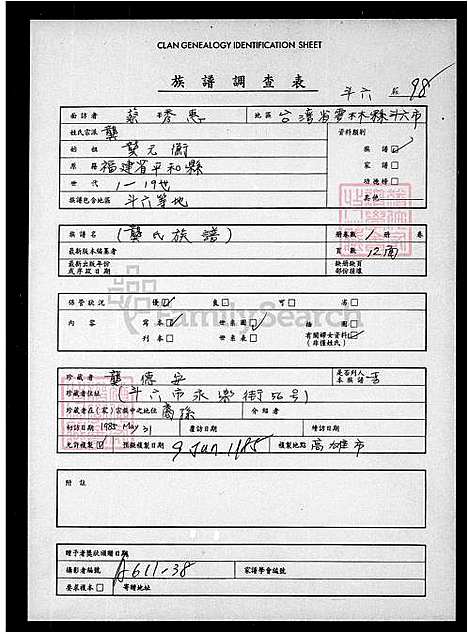 CLAN GENEALOGY IDENTIFICATION SHEET
族譜調查表
斗六 98
面訪者 蔡秀惠 地區 台灣省雲林縣斗六市
姓氏宗派 龔 資料類別
始祖 龔元衡 族譜
原籍 福建省平和縣 家譜
世代 1-19世 功德榜
族譜包含地區 斗六等地 其他
族譜名 (龔氏族譜) 册卷數 1册 卷
最新版本編纂者 頁數 12面
最新出版年份 缺册缺頁
或序跋日期 部份接壞
保管狀況 優 良 可 劣
內容 寫本 世系圖 插圖
刊本 世系表 有關婦女資料
(非僅姓氏)
FamilySearch
珍藏者 龔德安 是否列入
本族譜 否
珍藏者住址 (斗六市永樂街56号)
珍藏者在(家)宗族中之地位 裔孫 介紹者
初訪日期 1985 May 31 覆訪日期 續訪日期
允許複製 預擬複製日期 9 Jun 1985 複製地點 高雄市
附註
贈予者獎狀頒贈日期
攝影者編號 A611-38 家譜學會編號
要求複本 寄贈地址